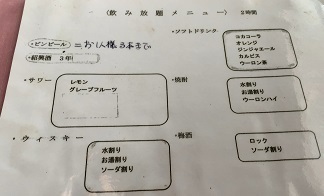 (飲み放題メニュー) 2時間
・ビンビール = お一人様3本まで
・紹興酒 3年
・ソフトドリンク
コカコーラ
オレンジ
ジンジャエール
カルピス
ウーロン茶
・サワー
レモン
グレープフルーツ
・焼酎
水割り
お湯割り
ウーロンハイ
・ウィスキー
水割り
お湯割り
ソーダ割り
・梅酒
ロック
ソーダ割り